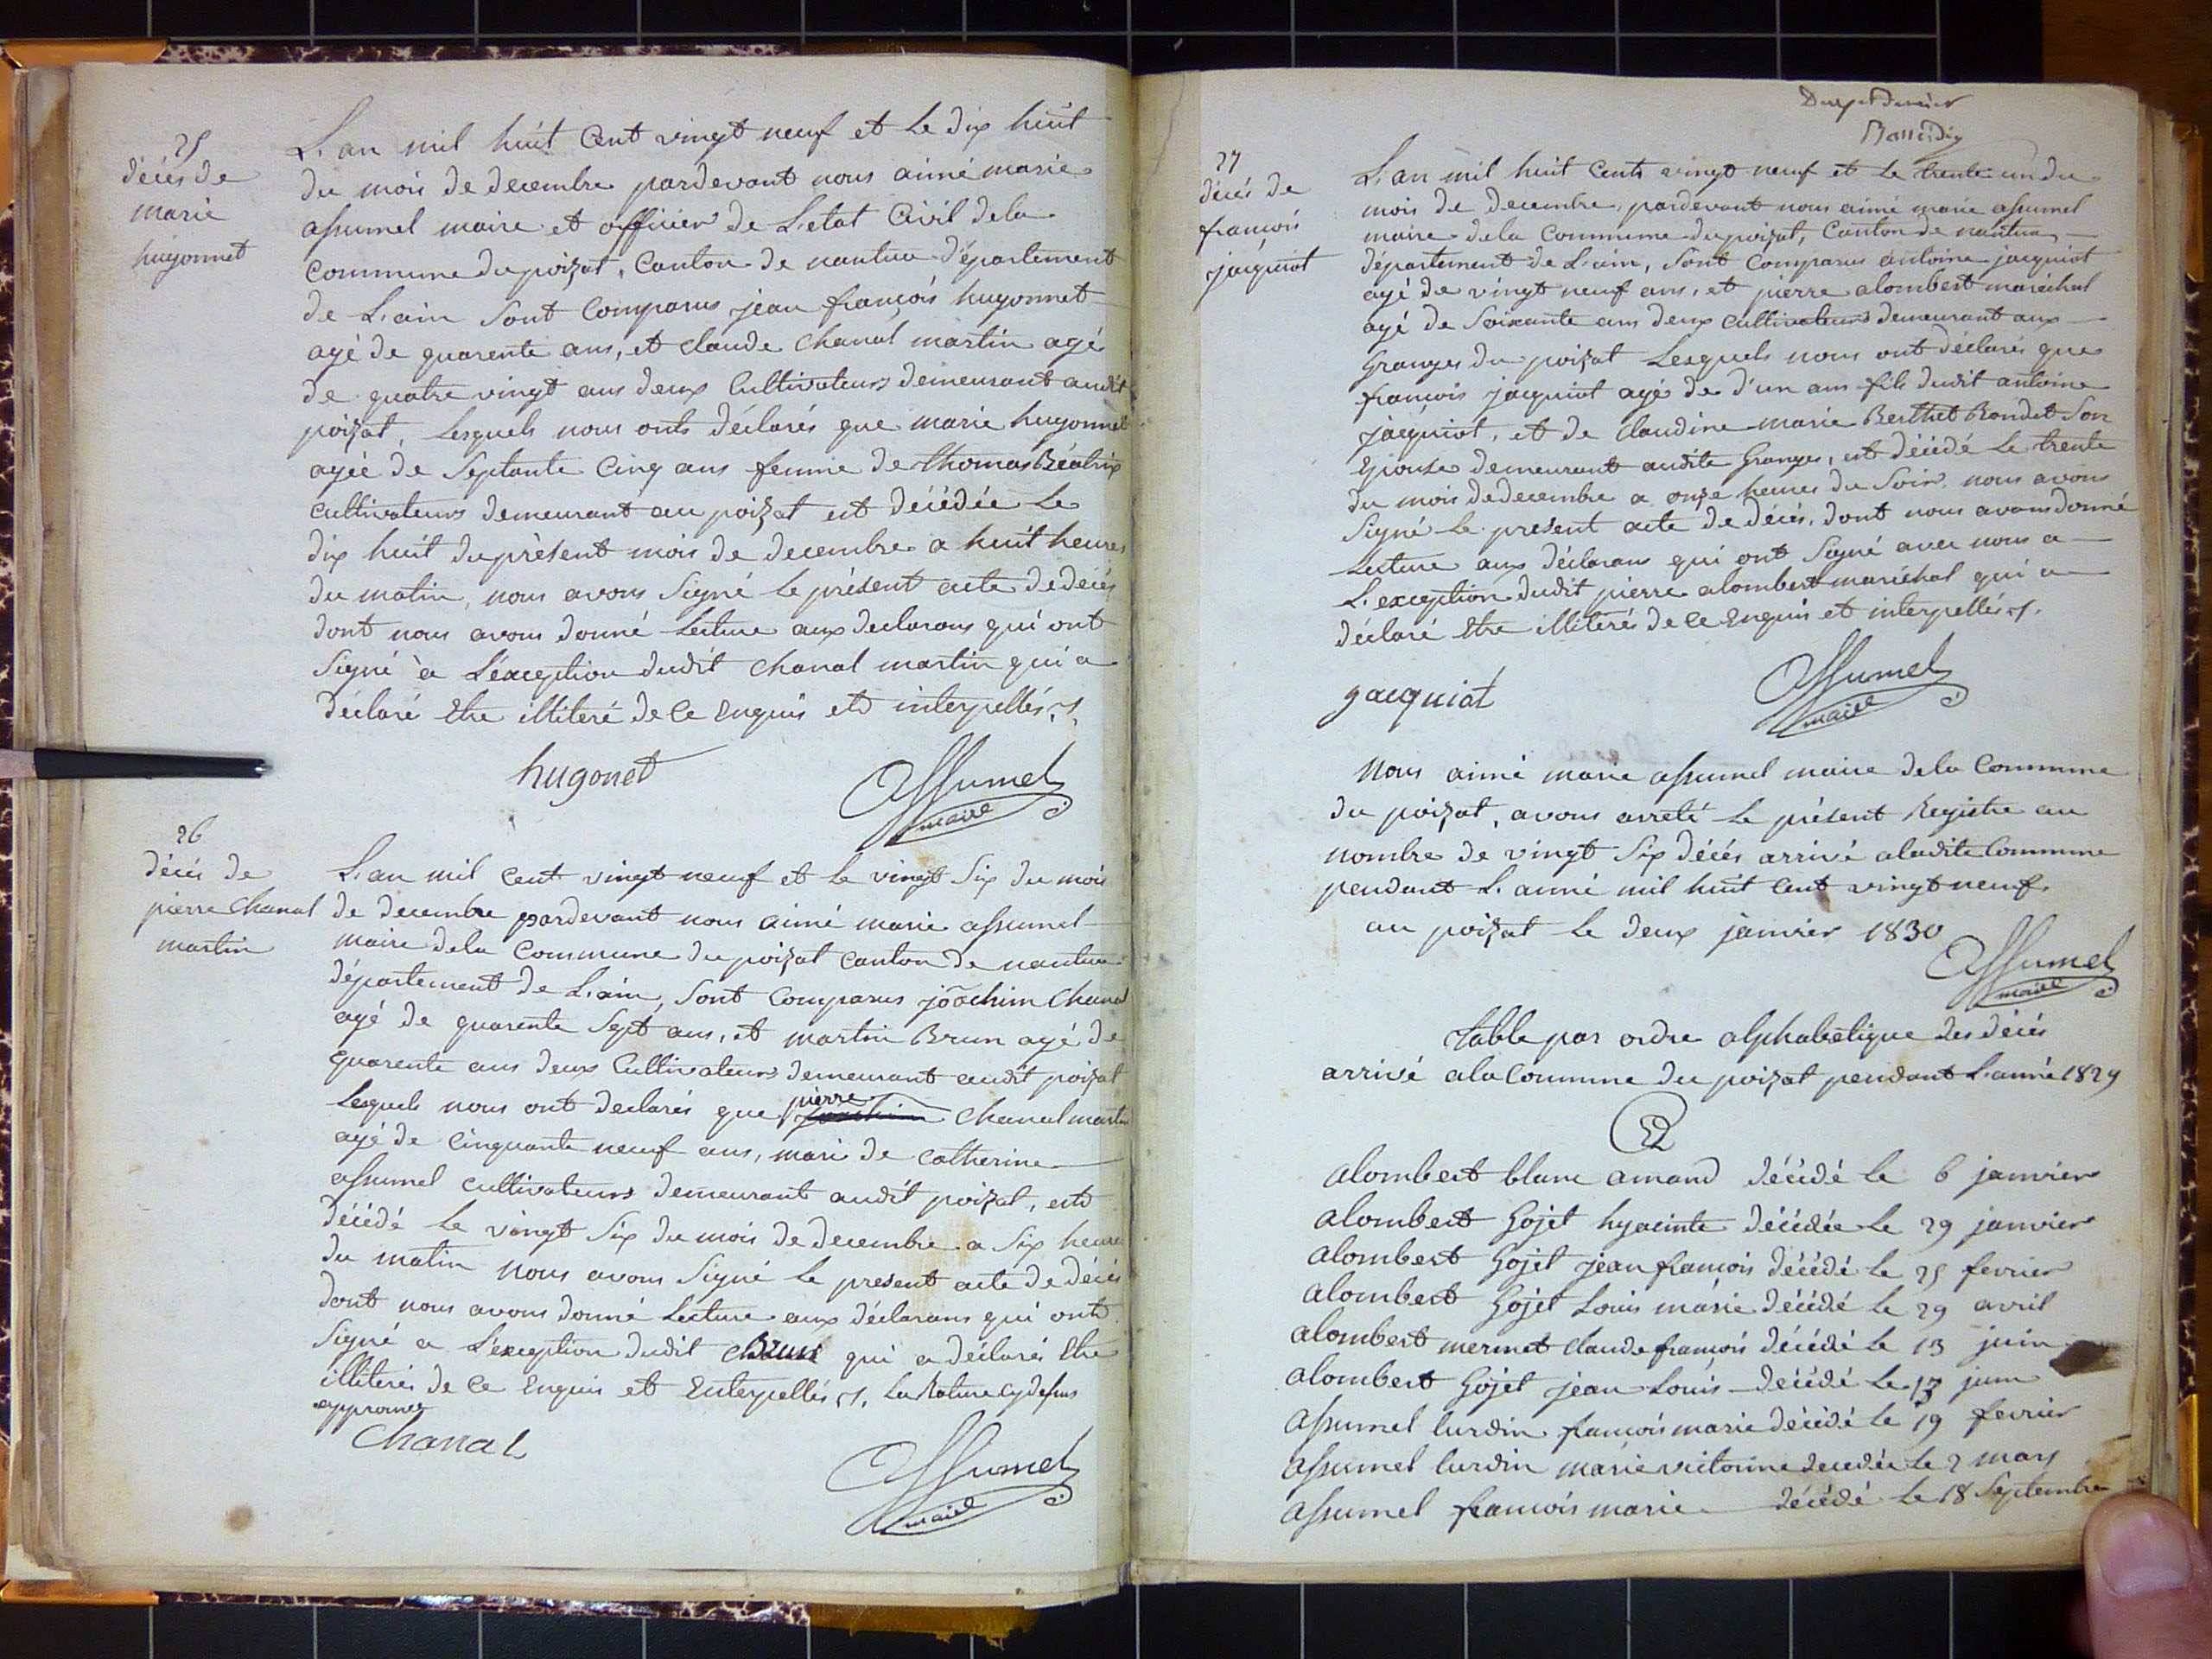 25
décés de
marie
hugonnet
L'an mil huit Cent vingt neuf et Le dix huit
du mois de decembre pardevant nous aimé marie
assumel maire et officier de L'etat Civil dela
Commune du poizat, Canton de nantua département
de L'ain Sont Comparus jean françois hugonnet
agé de quarente ans, et claude Chanal martin agé
de quatre vingt ans deux Cultivateurs demeurant audit
poizat, Lesquels nous onts déclarés que marie hugonnet
agée de Septante Cinq ans femme de thomas Béatrix
cultivateurs demeurant au poizat est décédée Le
dix huit du présent mois de decembre a huit heures
du matin, nous avons Signé Le présent acte de décés
dont nous avons donné Lecture aux declarans qui ont
Signé à L'éxception dudit Chanal martin qui a
déclaré Etre illiteré de Ce Enquis et interpellés
hugonet
Assumel
maire
26
décés de
pierre Chanal
martin
L'an mil Cent vingt neuf et Le vingt Six du mois
de decembre pardevant nous aimé marie assumel
maire dela Commune du poizat Canton de nantua
département de L'ain, Sont Comparus joachim Chanal
agé de quarente Sept ans, et martin Brun agé de
quarente ans deux Cultivateurs demeurant audit poizat
Lesquels nous ont declarés que pierre Chanal martin
agé de Cinquante neuf ans, mari de Catherine
assumel cultivateurs demeurant audit poizat, est
décédé Le vingt Six du mois de decembre a Six heures
du matin nous avons Signé Le present acte de décés
dont nous avons donné Lecture aux déclarans qui ont
Signé a L'exception dudit Brun qui a déclarés Etre
illiterés de Ce Enquis et Enterpellés. La Rature cy dessus
approuvé
Chanal
Assumel
maire
27
décés de
françois
jacquiot
L'an mil huit Cents vingt neuf et Le trente un du
mois de decembre, pardevant nous aimé marie assumel
maire dela Commune du poizat, Canton de nantua
département de L'ain, Sont Comparus antoine jacquiot
agé de vingt neuf ans, et pierre alombert maréchal
agé de Soixante ans deux Cultivateurs demeurant aux
Granges du poizat Lesquels nous ont déclarés que
françois jacquiot agé de d'un ans fils dudit antoine
jacquiot, et de Claudine marie Berthet Bondet Son
Epouse demeurant audite Granges, est décédé Le trente
du mois de decembre a onze heures du Soir. nous avons
Signé Le present acte de décés, dont nous avons donné
Lecture aux déclarans qui ont Signé avec nous a
L'exception dudit pierre alombert maréchal qui a
déclaré Etre illiterés de Ce Enquis et interpellés.
jacquiot
Assumel
maire
Nous aimé marie assumel maire dela Commune
du poizat, avons arreté Le présent Registre au
nombre de vingt Six décés arrivé aladite Commune
pendant L'année mil huit Cent vingt neuf.
au poizat Le deux janvier 1830
Assumel
maire
table par ordre alphabetique des décés
arrivé ala Commune du poizat pendant L'année 1829
alombert blanc amand décédé Le 6 janvier
alombert Gojet hyacinte décédée Le 29 janvier
alombert Gojet jean francois décédé Le 25 fevrier
alombert Gojet Louis marie décédé Le 29 avril
alombert mermet Claude françois décédé Le 13 juin
alombert Gojet jean Louis décédé Le 13 juin
assumel lurdin françois marie décédé Le 19 fevrier
assumel lurdin marie victorine decedée Le 2 mars
assumel francois marie décédé Le 18 Septembre